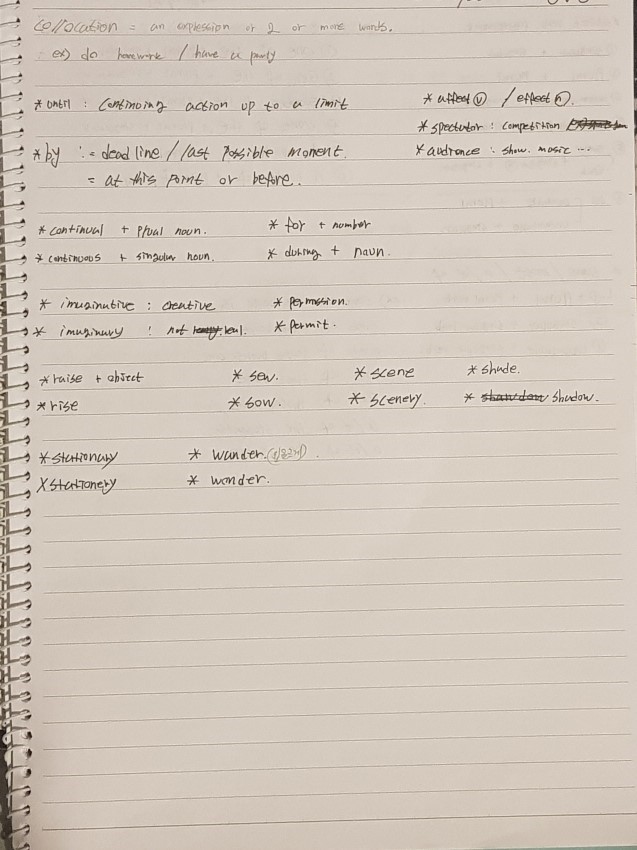 collocation = an expression or 2 or more words.
ex) do homework / have a party
* until : continuing action up to a limit
* affect ⓥ / effect ⓝ.
* spectator : competition
* by := deadline / last possible moment.
* audience : show. music ...
= at this point or before.
* continual + plual noun.
* for + number
* continuous + singular noun.
* during + noun.
* imaginative : creative
* permission.
* imaginary : not real.
* permit.
* raise + object
* sew.
* scene
* shade.
* rise
* sow.
* scenery.
* shadow.
* stationary
* wander.
* stationery
* wonder.